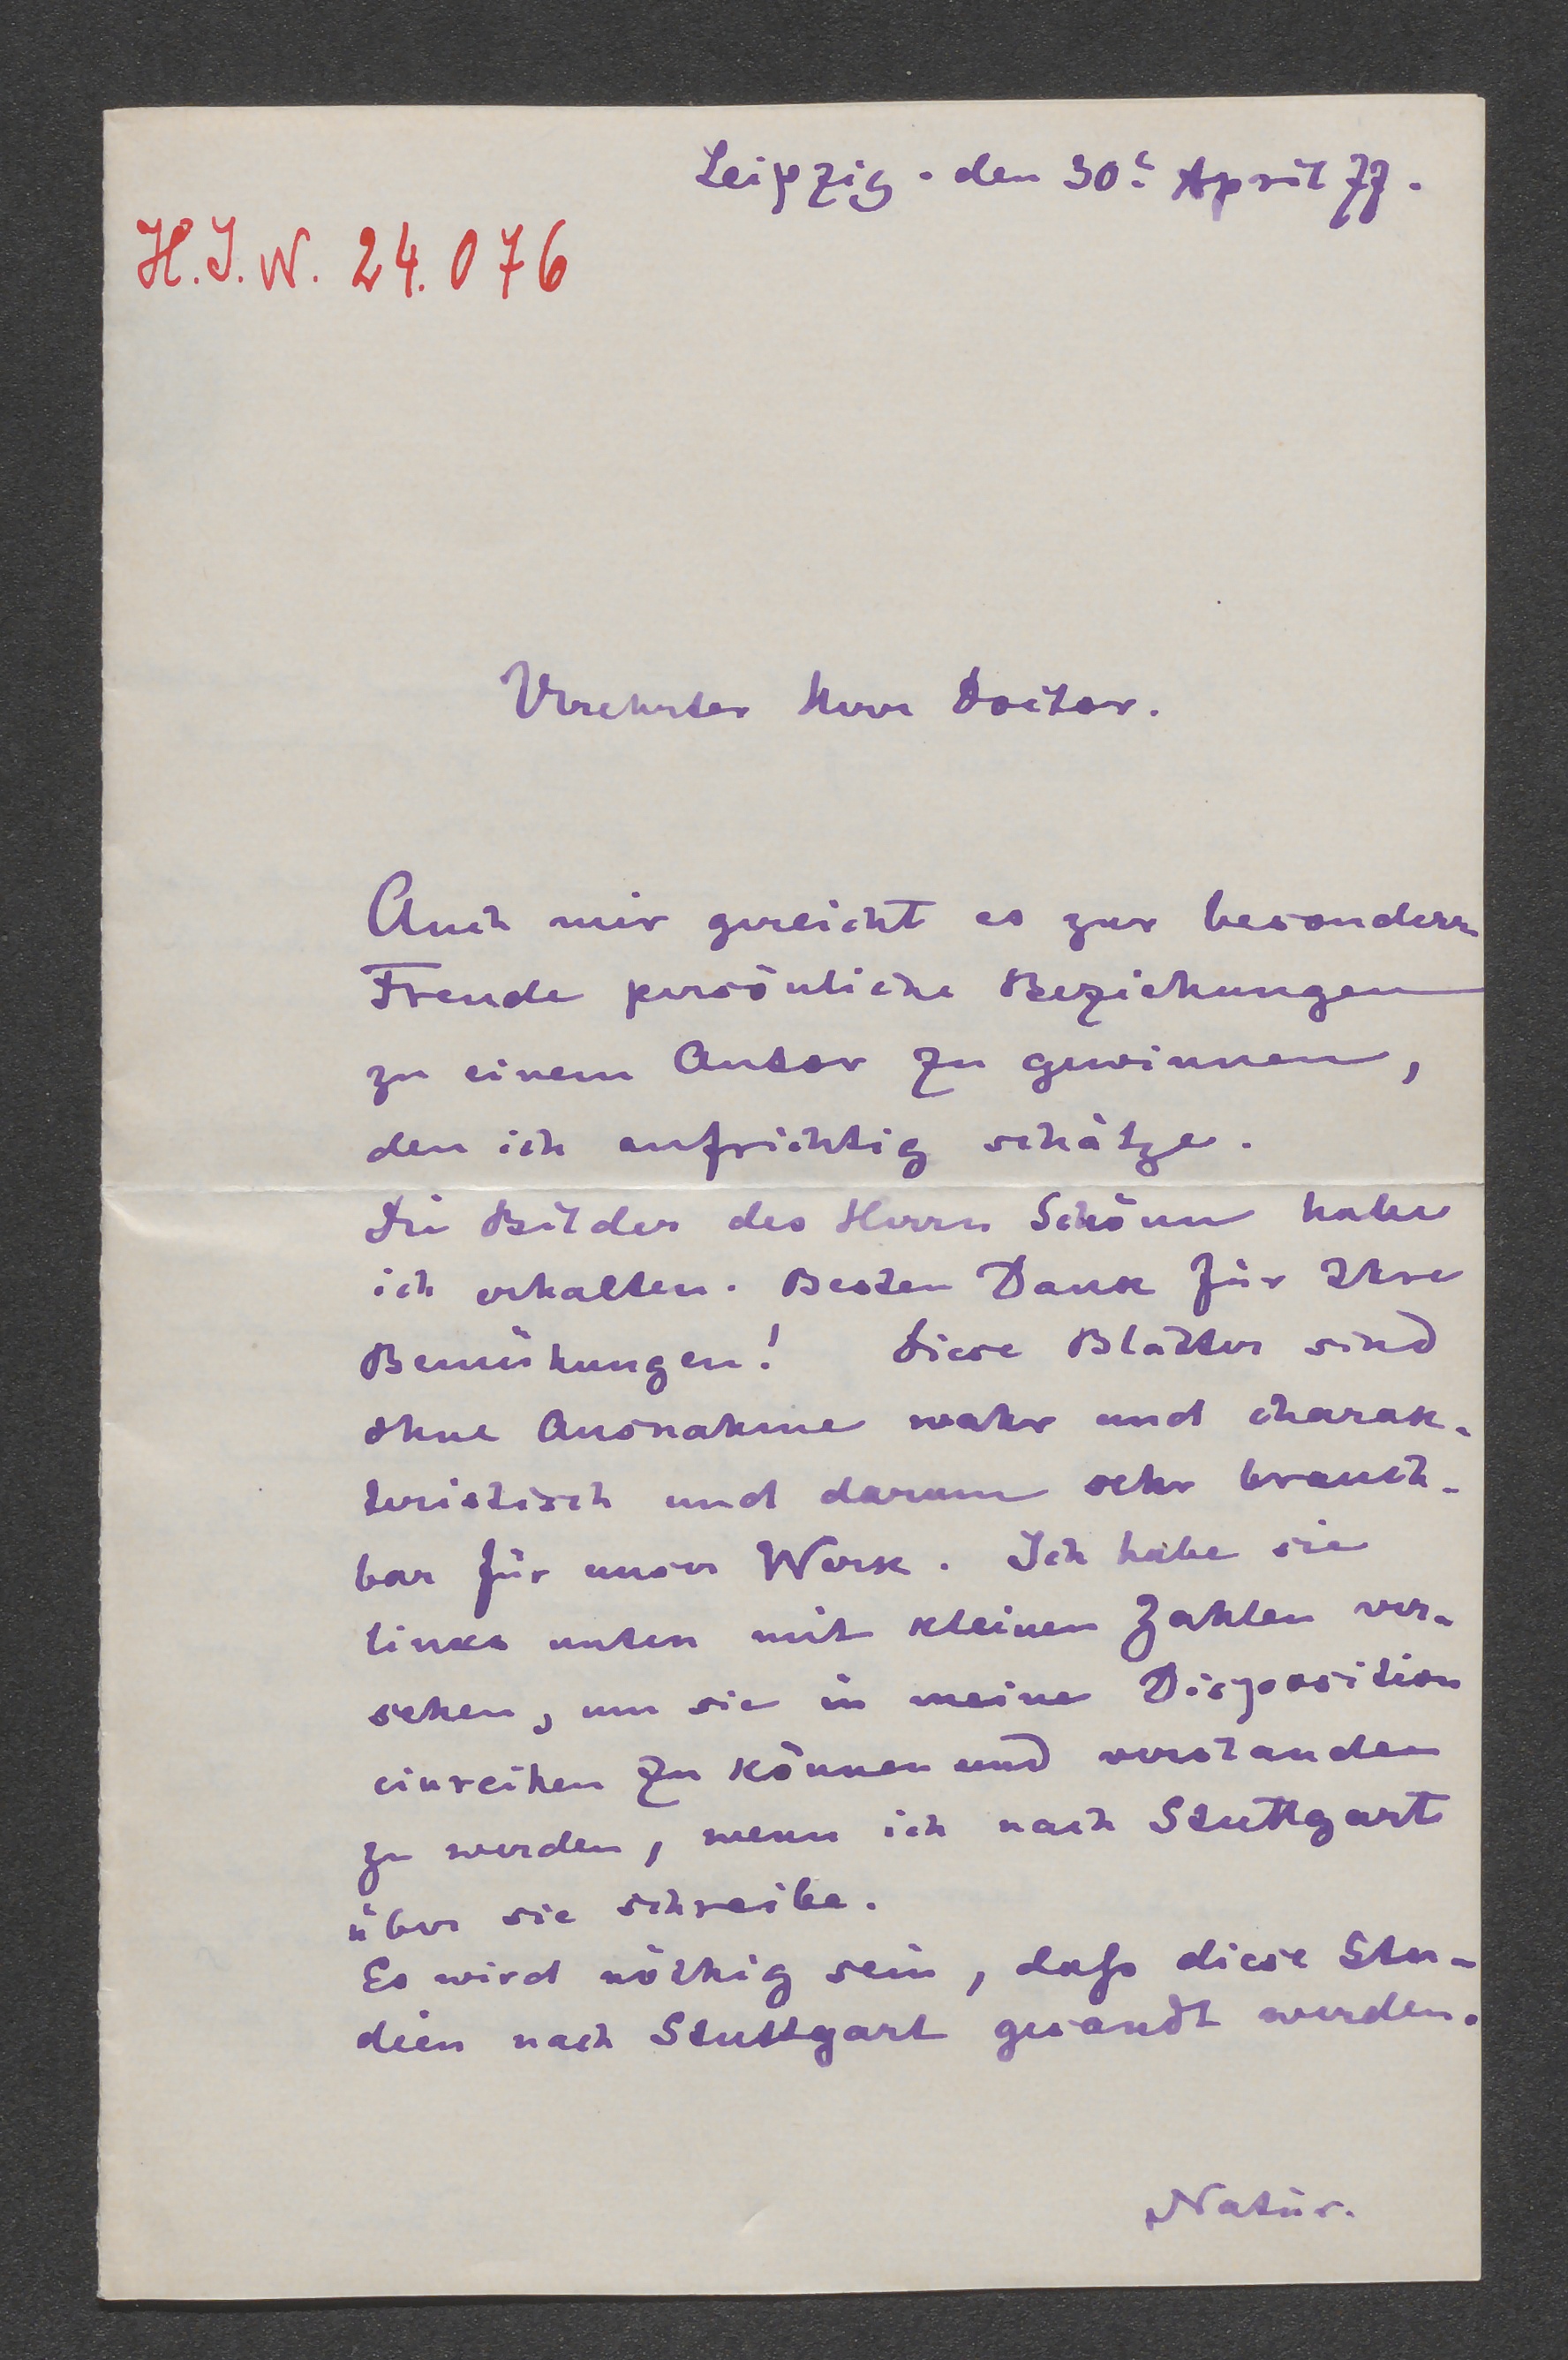 Leipzig. den 30t April 77.
H.I.N. 24.076
Verehrter Herr Doctor.
Auch mir gereicht es zur besondern
Freude persönliche Beziehungen
zu einem Autor zu gewinnen,
den ich aufrichtig schätze.
Die Bilder des Herrn Schönn habe
ich erhalten. Besten Dank für Ihre
Bemühungen! Diese Blätter sind
ohne Ausnahme wahr und charak-
teristisch und darum sehr brauch-
bar für unser Werk. Ich habe sie
links unten mit kleinen Zahlen ver-
sehen, um sie in meine Disposition
einreihen zu können und verstanden
zu werden, wenn ich nach Stuttgart
über sie schreibe.
Es wird nöthig sein, daß diese Stu-
dien nach Stuttgart gesandt werden.
Natür.